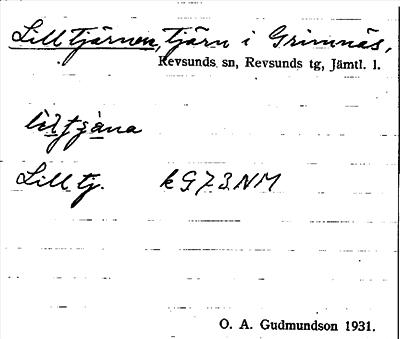 Lilltjärnen, tjärn i Grimnäs,
Revsunds sn, Revsunds tg, Jämtl. l.
Lill tj. k G 7 3. NM
O. A. Gudmundson 1931.